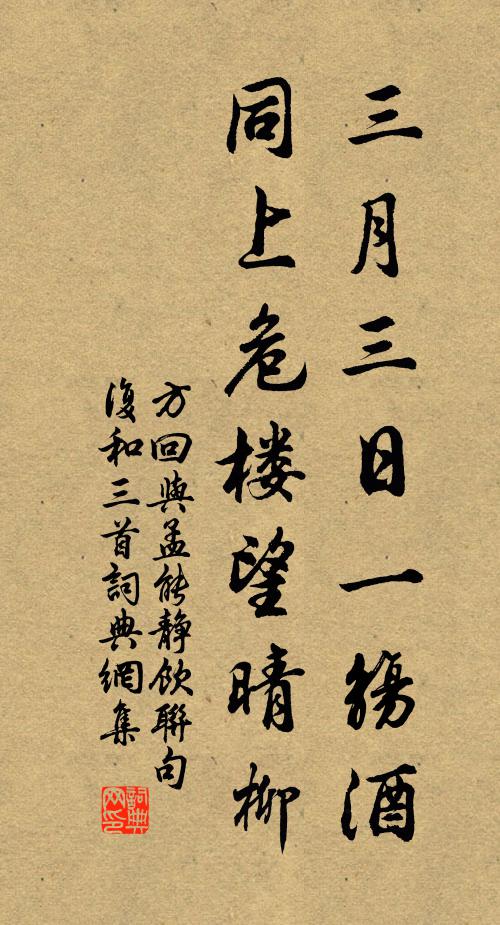 三月三日一觴酒
同上危楼望晴柳
方回與孟能靜飲聯句
復和三首詞典網集
詞典
网印